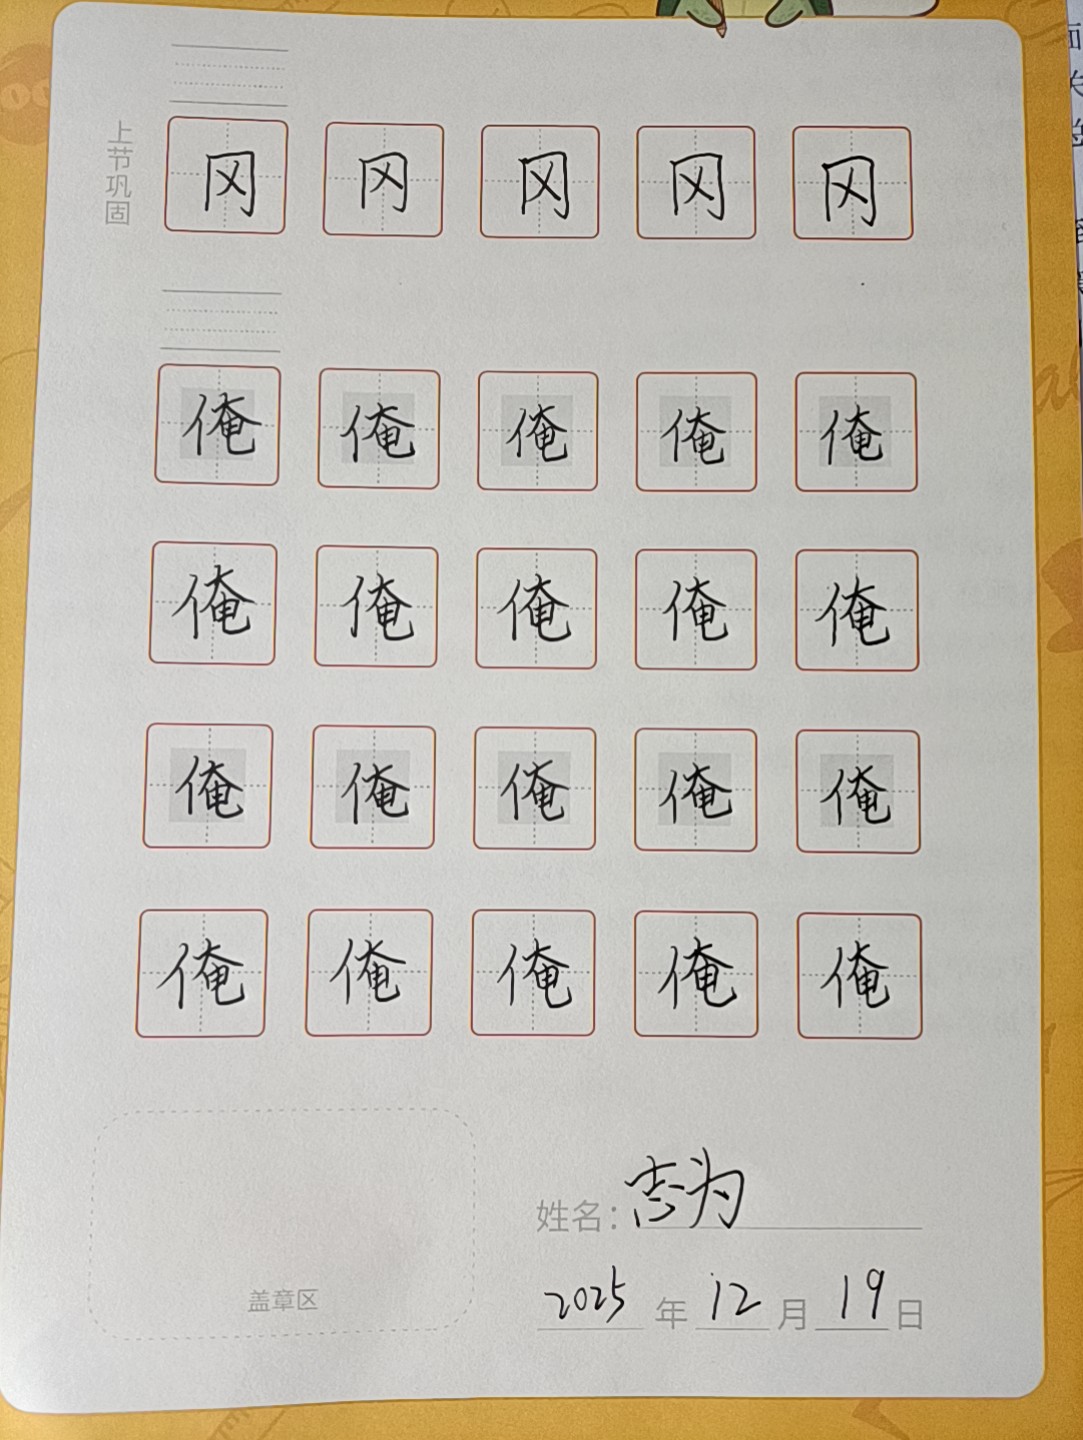 上节巩固
冈 冈 冈 冈 冈
俺 俺 俺 俺 俺
俺 俺 俺 俺 俺
俺 俺 俺 俺 俺
俺 俺 俺 俺 俺
姓名：志为
盖章区
2025 年 12 月 19 日